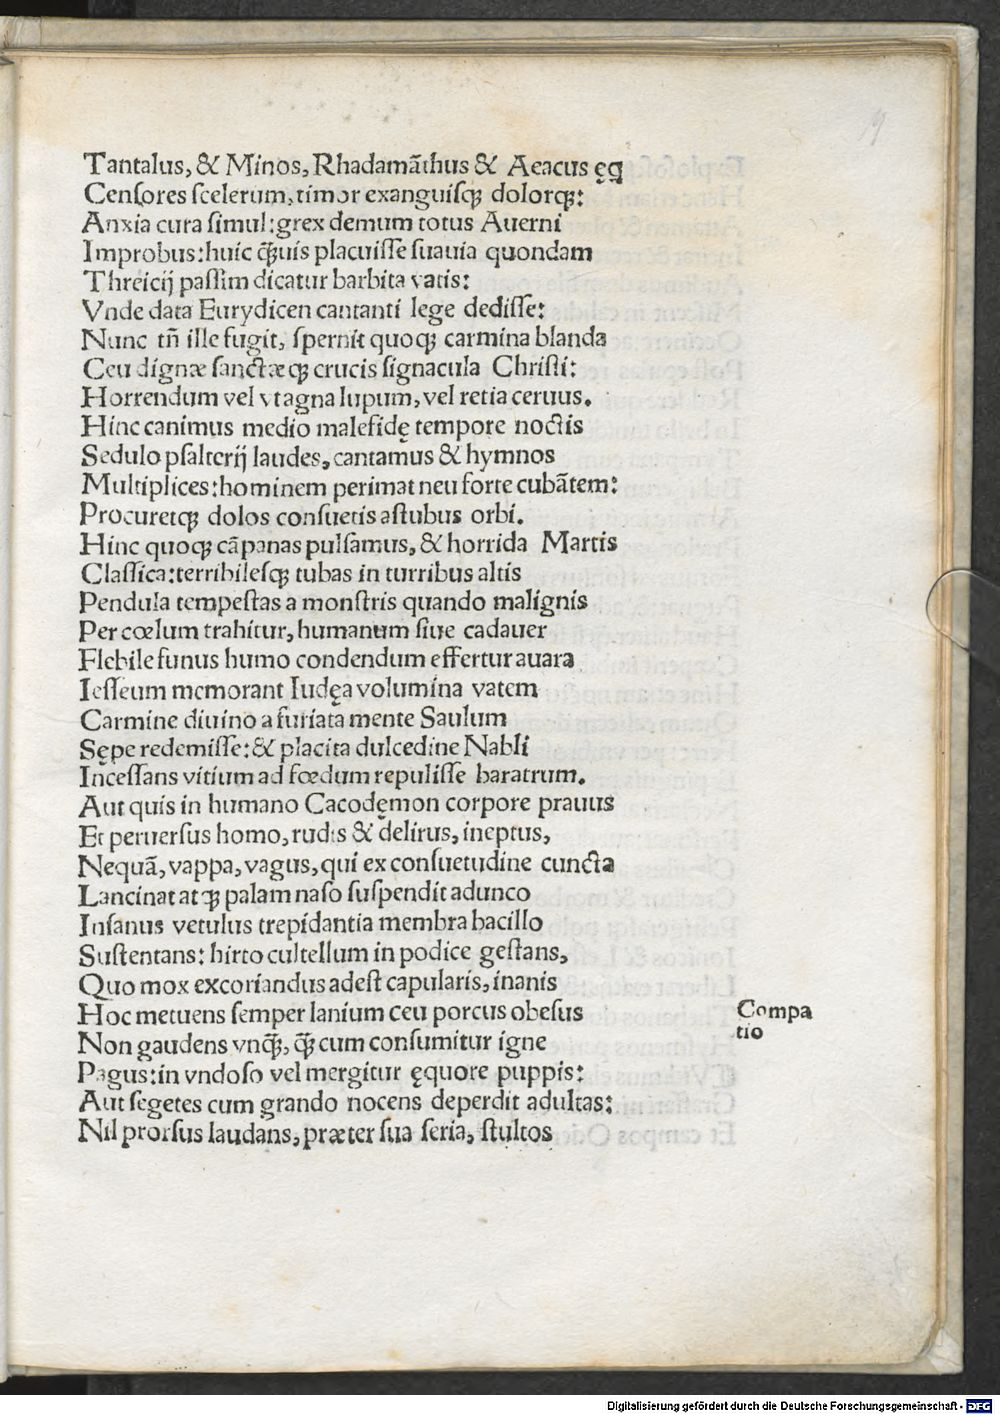 19
Tantalus, & Minos, Rhadamãthus & Aeacus ęq
Censores scelerum, timor exanguisqꝫ dolorqꝫ:
Anxia cura simul: grex demum totus Auerni
Improbus: huic q̃ꝫuis placuisse suauia quondam
Threicij passim dicatur barbita vatis:
Vnde data Eurydicen cantanti lege dedisse:
Nunc tñ ille fugit, spernit quoqꝫ carmina blanda
Ceu dignæ sanctæqꝫ crucis signacula Christi:
Horrendum vel vt agna lupum, vel retia ceruus.
Hinc canimus medio malefidę tempore noctis
Sedulo psalterij laudes, cantamus & hymnos
Multiplices: hominem perimat neu forte cubãtem:
Procuretqꝫ dolos consuetis astubus orbi.
Hinc quoqꝫ cãpanas pulsamus, & horrida Martis
Classica: terribilesqꝫ tubas in turribus altis
Pendula tempestas a monstris quando malignis
Per cœlum trahitur, humanum siue cadauer
Flebile funus humo condendum effertur auara
Iesseum memorant Iudęa volumina vatem
Carmine diuino a furiata mente Saulum
Sępe redemisse: & placita dulcedine Nabli
Incessans vitium ad fœdum repulisse baratrum.
Aut quis in humano Cacodęmon corpore prauus
Et peruersus homo, rudis & delirus, ineptus,
Nequã, vappa, vagus, qui ex consuetudine cuncta
Lancinat atqꝫ palam naso suspendit adunco
Insanus vetulus trepidantia membra bacillo
Sustentans: hirto cultellum in podice gestans,
Quo mox excoriandus adest capularis, inanis
Hoc metuens semper lanium ceu porcus obesus
Compa
tio
Non gaudens vnq̃ꝫ, q̃ꝫ cum consumitur igne
Pagus: in vndoso vel mergitur ęquore puppis:
Aut segetes cum grando nocens deperdit adultas:
Nil prorsus laudans, præter sua seria, stultos
Digitalisierung gefördert durch die Deutsche Forschungsgemeinschaft - DFG